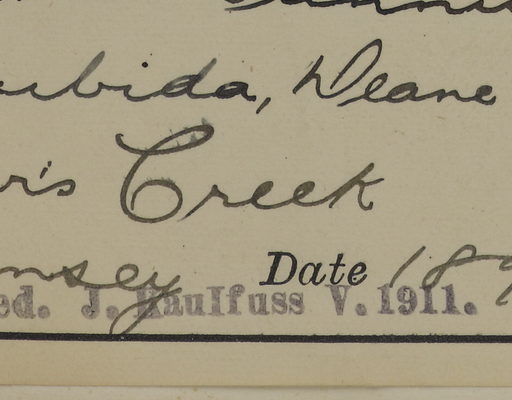 ubida, Deane
r's Creek
msey Date 189
ed. J. Haulfuss V. 1911.